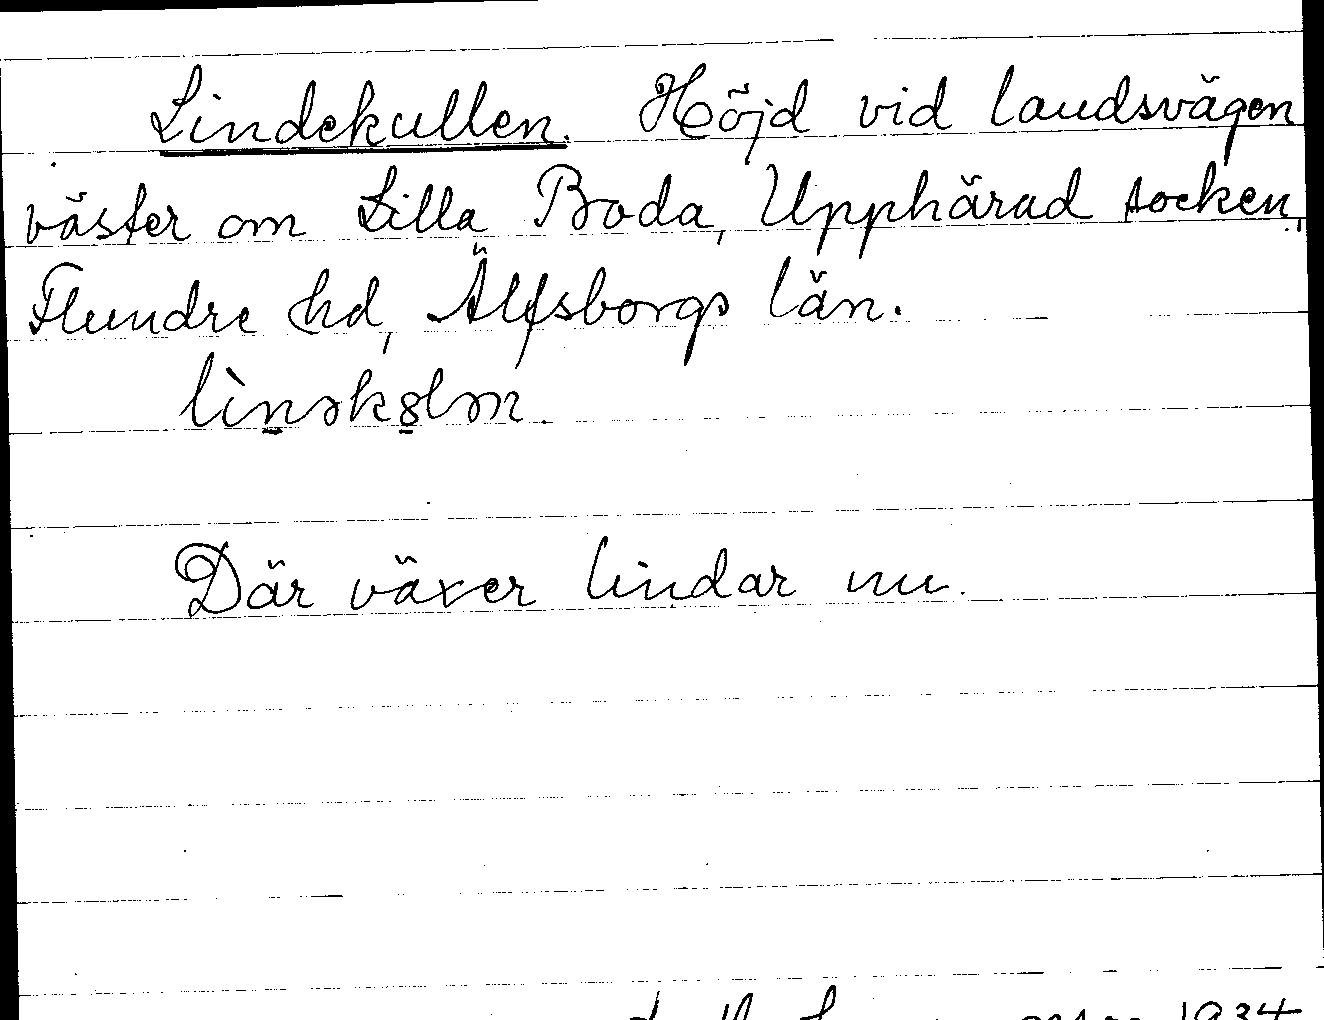 Lindekullen. Höjd vid landsvägen
väster om Lilla Boda, Upphärad socken,
Flundre hd, Älfsborgs län.
lìnəkɞlən.
Där växer lindar nu.
1934